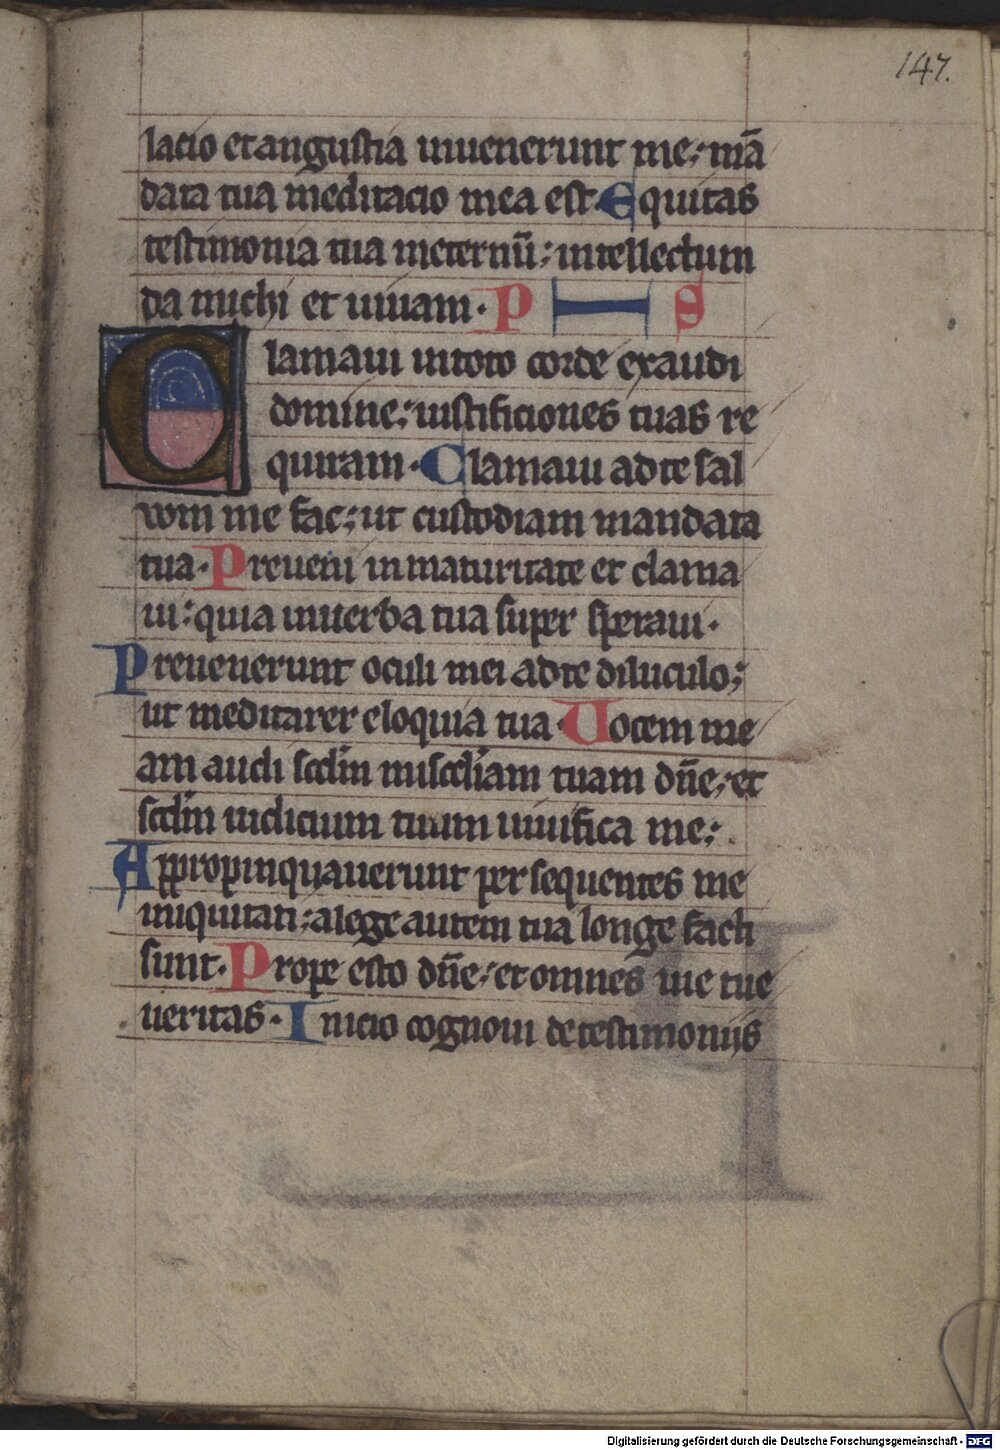 147.
lacio et angustia inuenerunt me; mā
data tua meditacio mea est. Equitas
testimonia tua ineternū; intellectum
da michi et uiuam. P S
Clamaui intoto corde exaudi
domine; iustificiones tuas re
quiram. Clamaui adte sal
wm me fac; ut custodiam mandata
tua. Preueni inmaturitate et clama
ui; quia inuerba tua super speraui.
Preuenerunt oculi mei adte diluculo;
ut meditarer eloquia tua. Uocem me
am audi scdm̄ mīscdīam tuam dn̄e; et
scdm̄ iudicium tuum uiuifica me;
Appropinquauerunt persequentes me
iniquitati; alege autem tua longe facti
sunt. Prope esto dn̄e; et omnes uie tue
ueritas. Inicio cognoui detestimoniis
Digitalisierung gefördert durch die Deutsche Forschungsgemeinschaft - DFG